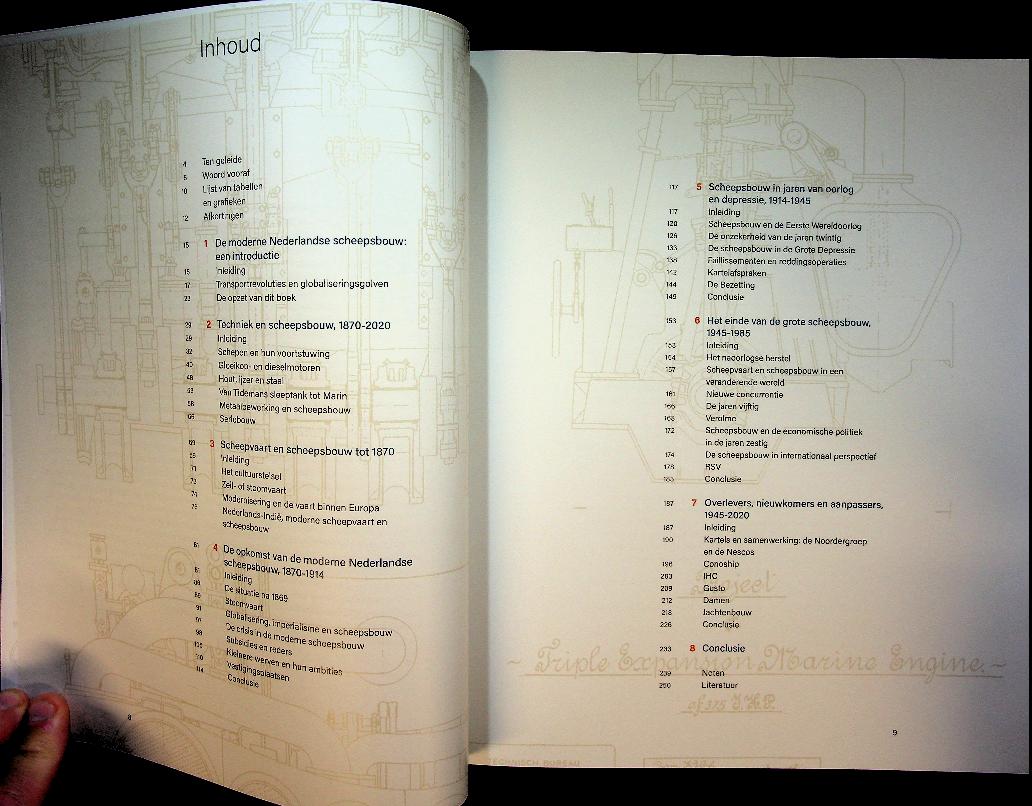 Inhoud
4 Ten geleide
5 Woord vooraf
10 Lijst van tabellen
en grafieken
12 Afkortingen
15 1 De moderne Nederlandse scheepsbouw:
een introductie
15 Inleiding
17 Transportrevoluties en globaliseringsgolven
23 De opzet van dit boek
29 2 Techniek en scheepsbouw, 1870-2020
29 Inleiding
32 Schepen en hun voortstuwing
40 Gloeikop- en dieselmotoren
48 Hout, ijzer en staal
53 Van Tidemans sleeptank tot Marin
58 Metaalbewerking en scheepsbouw
66 Seriebouw
69 3 Scheepvaart en scheepsbouw tot 1870
Inleiding
71 Het cultuurstelsel
73 Zeil- of stoomvaart
Modernisering en de vaart binnen Europa
Nederlands-Indië, moderne scheepvaart en
scheepsbouw
81 4 De opkomst van de moderne Nederlandse
scheepsbouw, 1870-1914
81 Inleiding
De situatie na 1869
Stoomvaart
91 Globalisering, imperialisme en scheepsbouw
De crisis in de moderne scheepsbouw
98 Subsidies en reders
Kleinere werven en hun ambities
110 Vestigingsplaatsen
114 Conclusie
8
117 5 Scheepsbouw in jaren van oorlog
en depressie, 1914-1945
117 Inleiding
120 Scheepsbouw en de Eerste Wereldoorlog
126 De onzekerheid van de jaren twintig
133 De scheepsbouw in de Grote Depressie
138 Faillissementen en reddingsoperaties
142 Kartelafspraken
144 De Bezetting
149 Conclusie
153 6 Het einde van de grote scheepsbouw,
1945-1985
153 Inleiding
154 Het naoorlogse herstel
157 Scheepvaart en scheepsbouw in een
veranderende wereld
161 Nieuwe concurrentie
166 De jaren vijftig
168 Verolme
172 Scheepsbouw en de economische politiek
in de jaren zestig
174 De scheepsbouw in internationaal perspectief
178 RSV
185 Conclusie
187 7 Overlevers, nieuwkomers en aanpassers,
1945-2020
187 Inleiding
190 Kartels en samenwerking: de Noordergroep
en de Nescos
196 Conoship
203 IHC
209 Gusto
212 Damen
218 Jachtenbouw
226 Conclusie
233 8 Conclusie
239 Noten
250 Literatuur
Project
~ Triple Expansion Marine Engine. ~
of 375 I.H.P.
TECHNISCH BUREAU
9